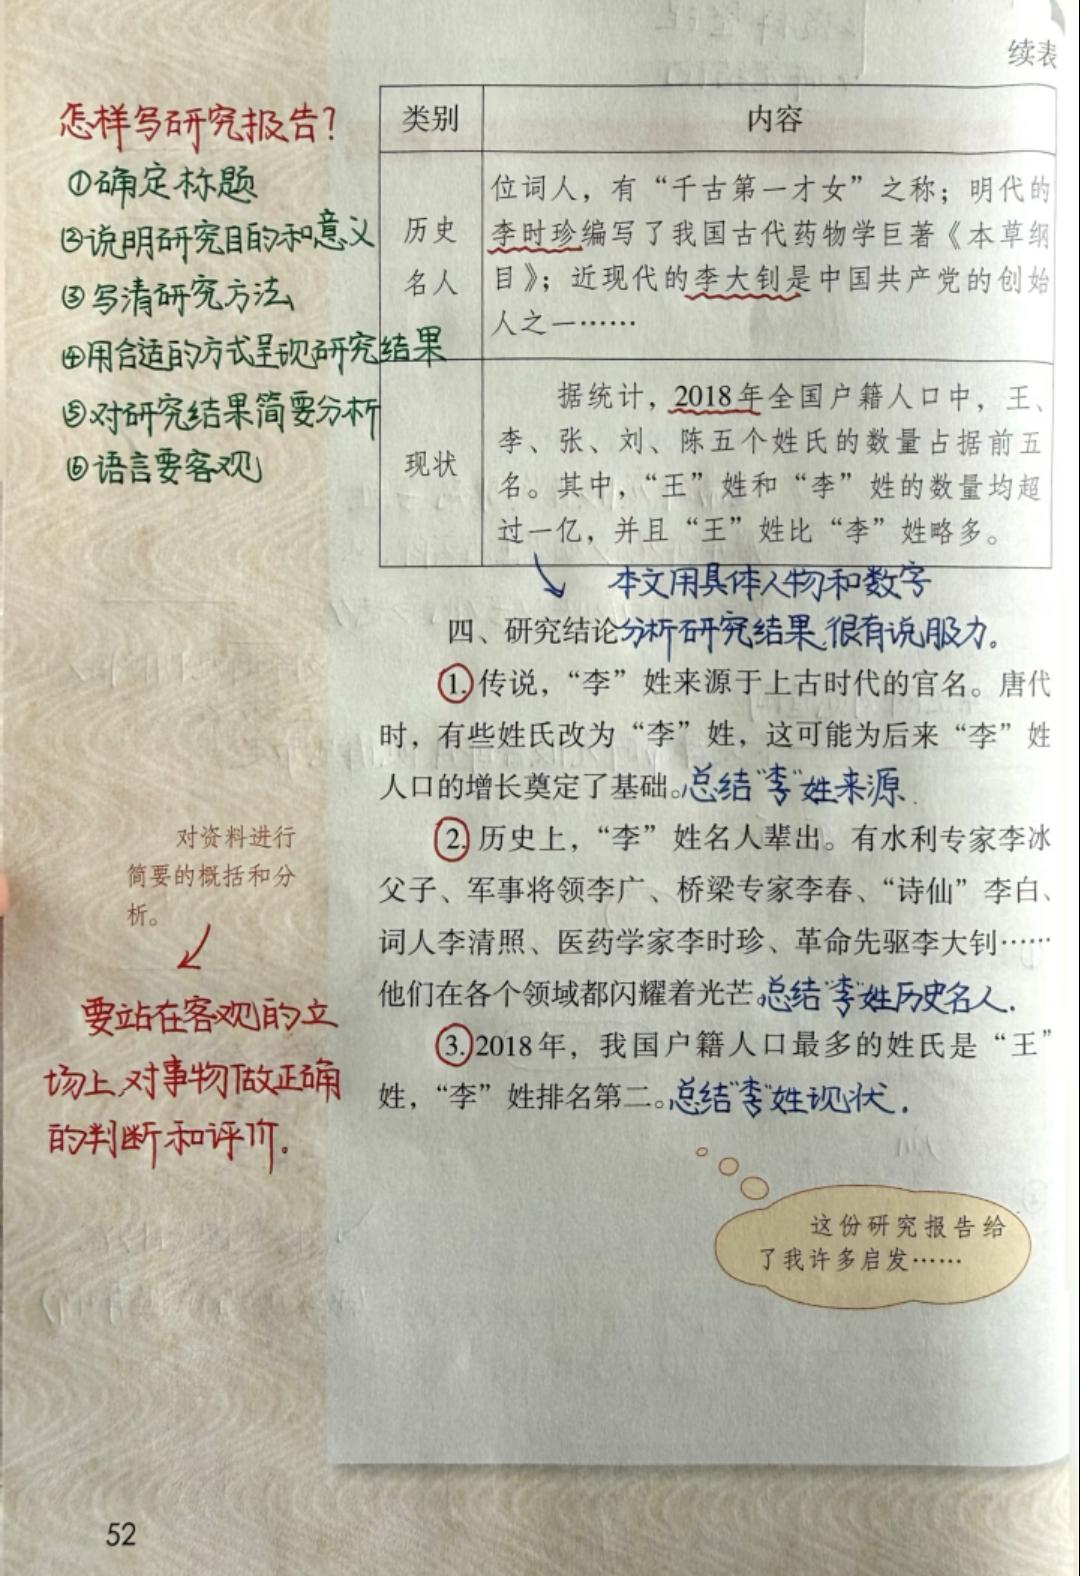 续表
怎样写研究报告?
①确定标题
②说明研究目的和意义
③写清研究方法
④用合适的方式呈现研究结果
⑤对研究结果简要分析
⑥语言要客观
类别 内容
历史
名人
位词人，有“千古第一才女”之称；明代的
李时珍编写了我国古代药物学巨著《本草纲
目》；近现代的李大钊是中国共产党的创始
人之一……
现状
据统计，2018年全国户籍人口中，王、
李、张、刘、陈五个姓氏的数量占据前五
名。其中，“王”姓和“李”姓的数量均超
过一亿，并且“王”姓比“李”姓略多。
本文用具体人物和数字
分析研究结果,很有说服力。
四、研究结论
1.传说，“李”姓来源于上古时代的官名。唐代
时，有些姓氏改为“李”姓，这可能为后来“李”姓
人口的增长奠定了基础。总结“李”姓来源.
2.历史上，“李”姓名人辈出。有水利专家李冰
父子、军事将领李广、桥梁专家李春、“诗仙”李白、
词人李清照、医药学家李时珍、革命先驱李大钊……
他们在各个领域都闪耀着光芒。总结“李”姓历史名人.
3.2018年，我国户籍人口最多的姓氏是“王”
姓，“李”姓排名第二。总结“李”姓现状.
对资料进行
简要的概括和分
析。
要站在客观的立
场上,对事物做正确
的判断和评价.
这份研究报告给
了我许多启发……
52